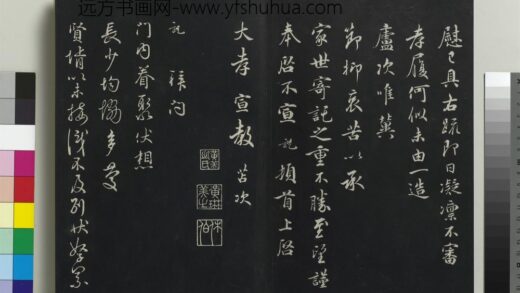 远方书画网-www.yfshuhua.com
慰已具右疏即日凝凛不審
孝履何似未由一造
盧次唯冀
節抑哀苦以承
家世寄託之重不勝至望謹
奉啓不宣 頓首上啓
大孝宣教 苫次
門内眷聚伏想
長少均協多慶
賢情以未接識不及別狀